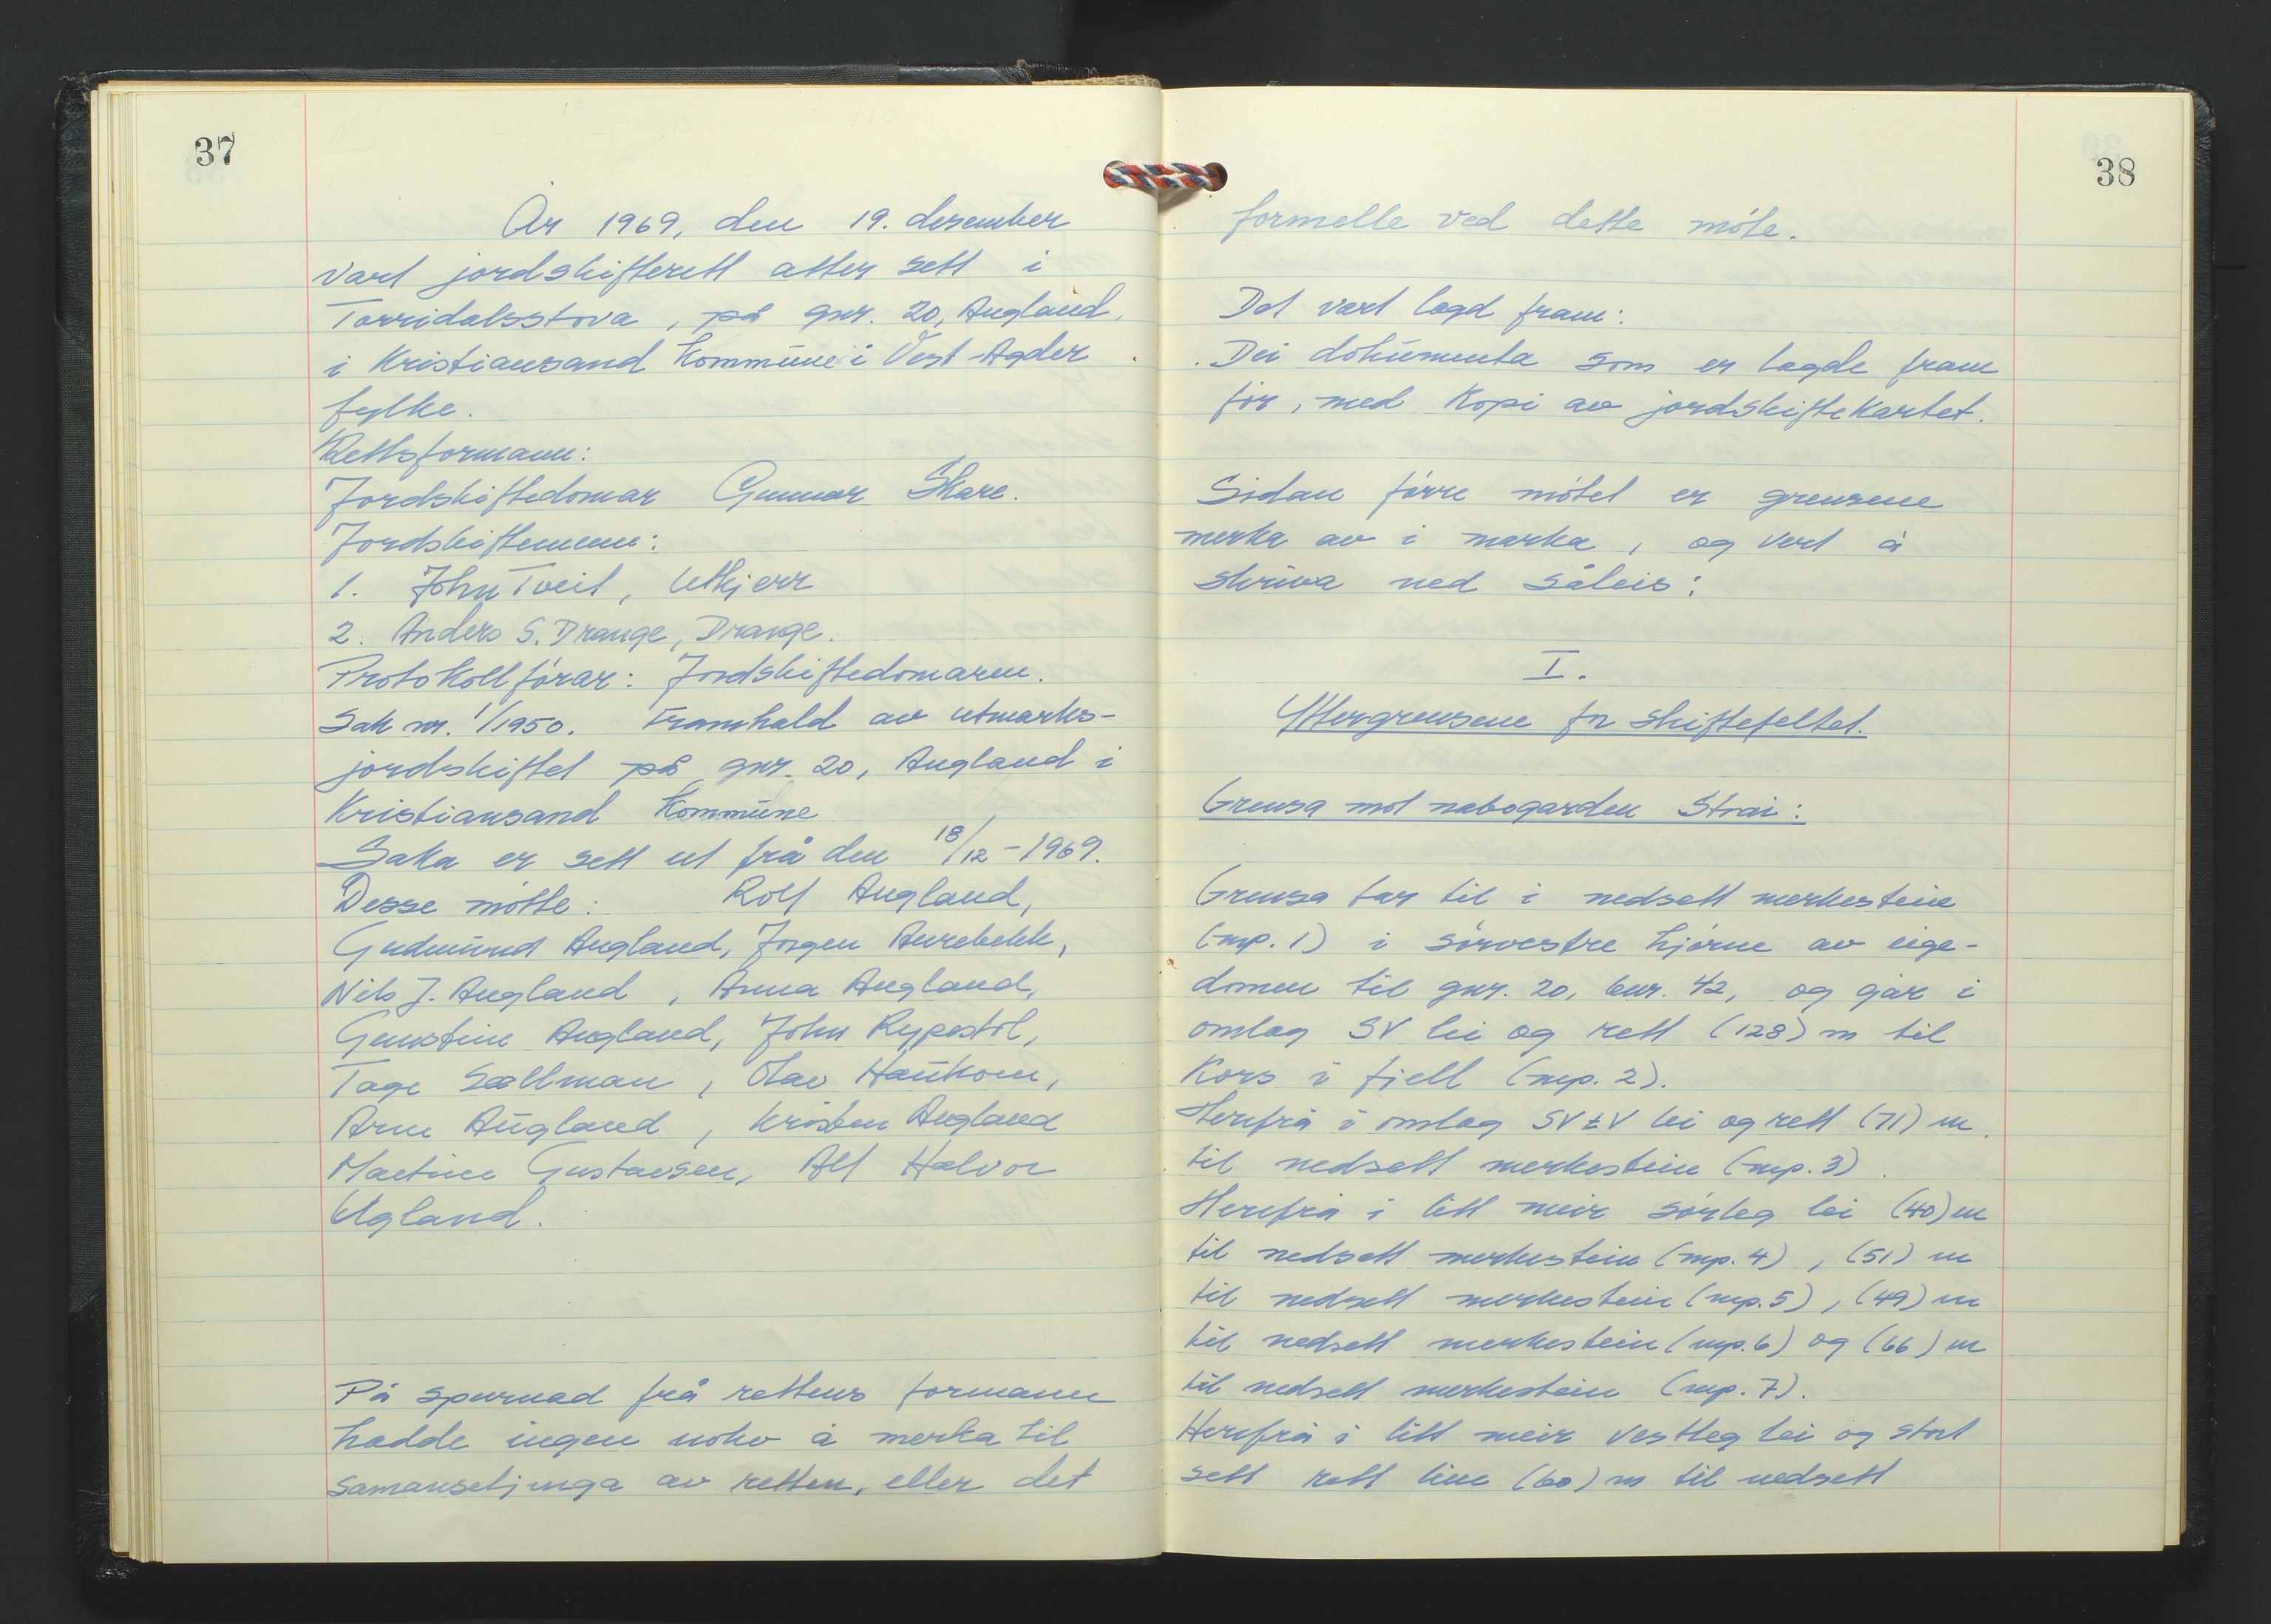 37
År 1969, den 19. desember
vart jordskifterett atter sett i
Torridalsstova, på gnr. 20, Augland,
i Kristiansand kommune i Vest-Agder
fylke.
Rettsformann:
Jordskiftedomar Gunnar Skare.
Jordskiftemenn:
1. John Tveit, Utkjerr
2. Anders S. Drange, Drange.
Protokollførar: Jordskiftedomaren.
Sak nr. 1/1950. Framhald av utmarks-
jordskiftet på gnr. 20, Augland i
Kristiansand Kommune
Saka er sett ut frå den 18/12-1969.
Desse møtte: Rolf Augland,
Gudmund Augland, Jørgen Aurebekk,
Nils J. Augland, Anna Augland,
Gunstein Augland, John Rypestöl,
Tage Sællman, Olav Haukom,
Arne Augland, Kristen Augland
Martin Gustavsen, Alf Halvor
Ugland.
På spurnad frå rettens formann
hadde ingen noko å merka til
samansetjinga av retten, eller det
38
formelle ved dette møte.
Det vart lagd fram:
Dei dokumenta som er lagde fram
før, med kopi av jordskiftekartet.
Sidan førre møtet er grensene
merka av i marka, og vert å
skriva ned såleis:
I.
Yttergrensene for skiftefeltet.
Grensa mot nabogarden Strai:
Grensa tar til i nedsett merkestein
(mp. 1) i sørvestre hjørne av eige-
domen til gnr. 20, bnr. 42, og går i
omlag SV lei og rett (128) m til
kors i fjell (mp. 2).
Herifrå i omlag SV t V lei og rett (71) m
til nedsett merkestein (mp. 3).
Herifrå i litt meir sørleg lei (40) m
til nedsett merkestein (mp. 4), (51) m
til nedsett merkestein (mp. 5), (49) m
til nedsett merkestein (mp. 6) og (66) m
til nedsett merkestein (mp. 7).
Herifrå i litt meir vestleg lei og stort
sett rett line (60) m til nedsett